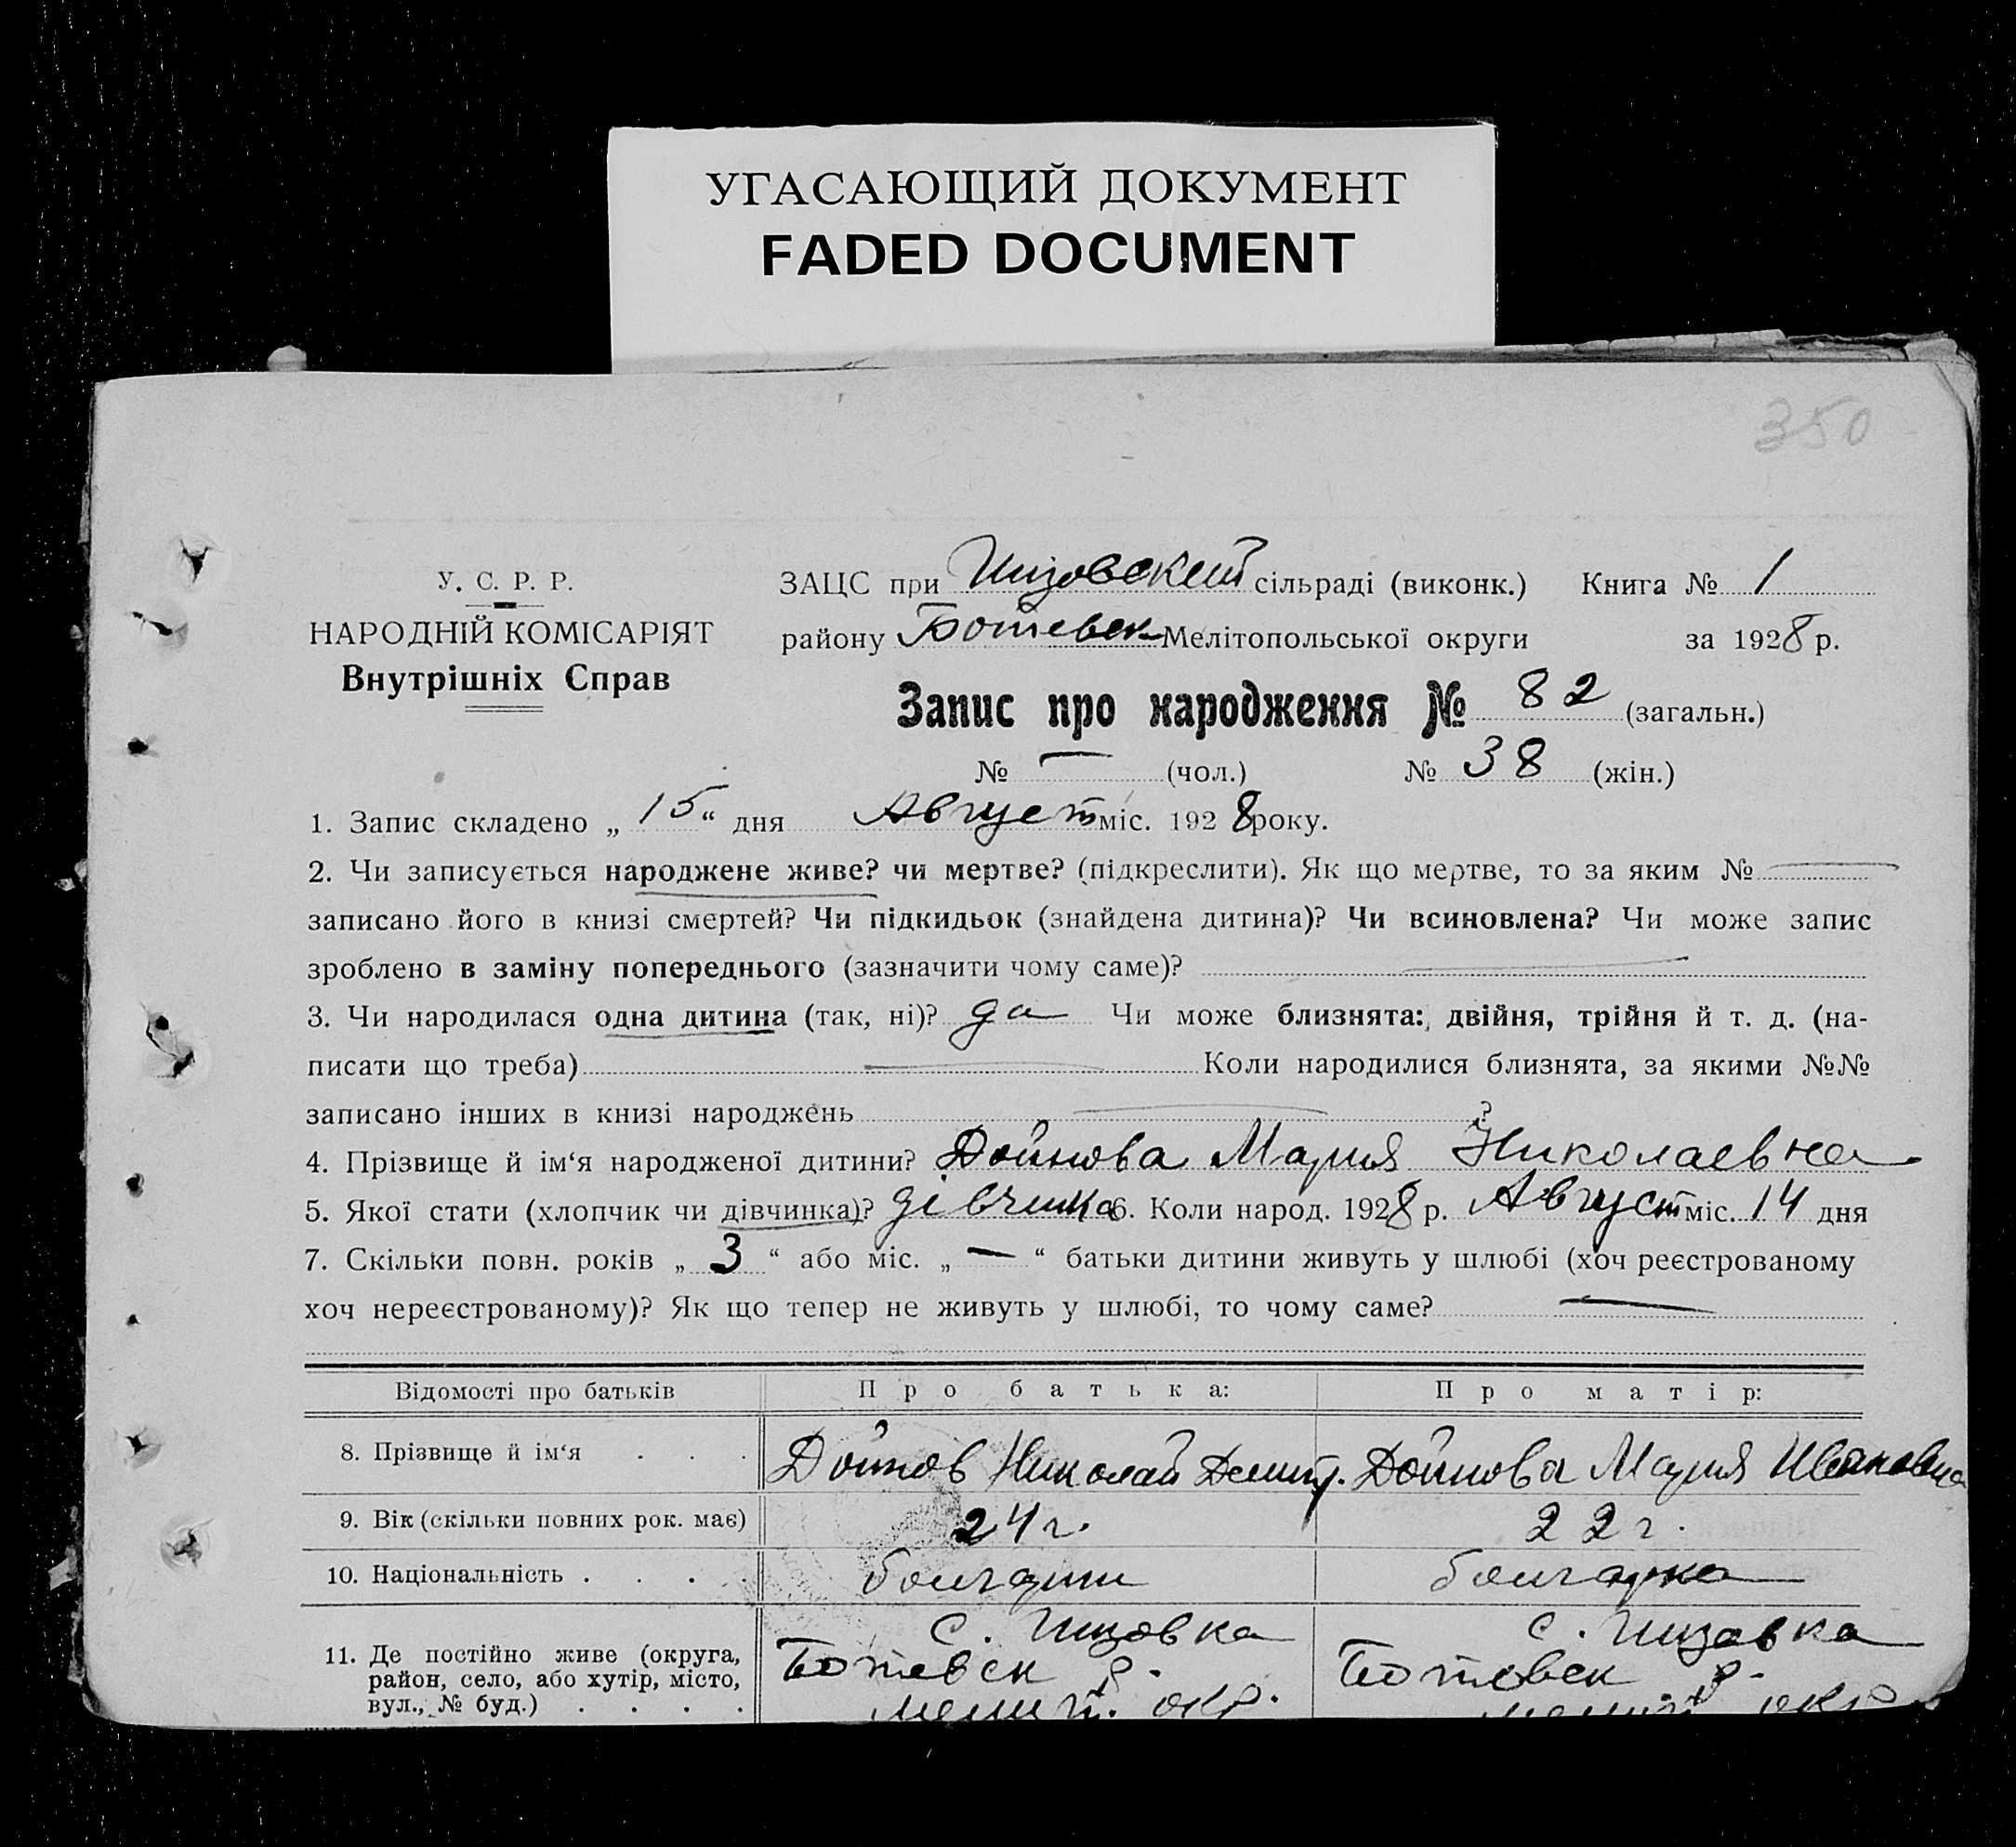 УГАСАЮЩИЙ ДОКУМЕНТ
FADED DOCUMENT
350
У. С. Р. Р.
НАРОДНІЙ КОМІСАРІЯТ
Внутрішніх Справ
ЗАЦС при сільраді (виконк.) Книга № 1
району Ботевск Мелітопольської округи за 1928 р.
Запис про народження № 82 (загальн.)
№ — (чол.) № 38 (жін.)
1. Запис складено „ 15 “ дня Август міс. 1928 року.
2. Чи записується народжене живе? чи мертве? (підкреслити). Як що мертве, то за яким № —
записано його в книзі смертей? Чи підкидьок (знайдена дитина)? Чи всиновлена? Чи може запис
зроблено в заміну попереднього (зазначити чому саме)? —
3. Чи народилася одна дитина (так, ні)? да Чи може близнята: двійня, трійня й т. д. (на-
писати що треба) — Коли народилися близнята, за якими №№
записано інших в книзі народжень — ?
4. Прізвище й ім‘я народженої дитини? Дойнова Мария Николаевна
5. Якої стати (хлопчик чи дівчинка)? дівчинка 6. Коли народ. 1928 р. Август міс. 14 дня
7. Скільки повн. років „ 3 “ або міс. „ — “ батьки дитини живуть у шлюбі (хоч реєстрованому
хоч нереєстрованому)? Як що тепер не живуть у шлюбі, то чому саме? —
Відомості про батьків Про батька: Про матір:
8. Прізвище й ім‘я . . . Дойнов Николай Демитр. Дойнова Мария Ивановна
9. Вік (скільки повних рок. має) 24 г. 22 г.
10. Національність . . . . болгарин болгарка
с. с.
11. Де постійно живе (округа, Ботевск р. Ботевск р.
район, село, або хутір, місто,
вул., № буд.) . . . . мелит. окр. мелит. окр.